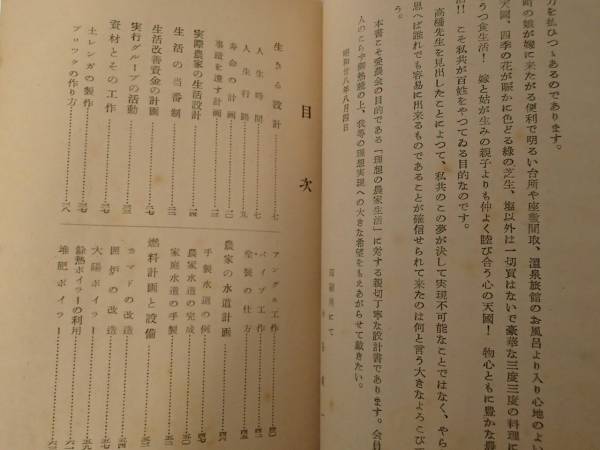 力を払ひつゝあるのであります。
町の娘が嫁に来たがる便利で明るい台所や座敷間取、温泉旅館のお風呂より入り心地のよい
天國、四季の花が賑かに色どる綠の芝生、塩以外は一切買はないで豪華な三度三度の料理に
うつ食生活！ 嫁と姑が生みの親子よりも仲よく睦び合う心の天國！ 物心ともに豊かな農
活!! こそ私共が百姓をやつてゐる目的なのです。
高橋先生を見出したことによつて、私共のこの夢が決して実現不可能なことではなく、やら
思へば誰れでも容易に出来るものであることが確信せられて来たのは何と言う大きなよろこび
う。
本書こそ愛農会の目的である「理想の農家生活」に対する親切丁寧な設計書であります。会員
人のこらず御熟読の上、我等の理想実現への大きな希望をもえあがらせて戴きたい。
昭和廿八年八月四日
目次
生きる設計……七
人生時間……七
人生行路……九
寿命の計画……一〇
事蹟を遺す計画……
実際農家の生活設計……
生活の当番制……
生活改善資金の計画……二七
実行グループの活動……
資材とその工作……三七
土レンガの製作……三七
ブロツクの作り方……三八
アングル工作……四〇
パイプ工作……
塗製の仕方……
農家の水道計画……四六
手製水道の例……四七
農家水道の完成……
家庭水道の手製……
燃料計画と設備……
カマドの改造……五四
囲炉の改造……
太陽ボイラー……五九
餘熱ボイラーの利用……六一
堆肥ボイラー……